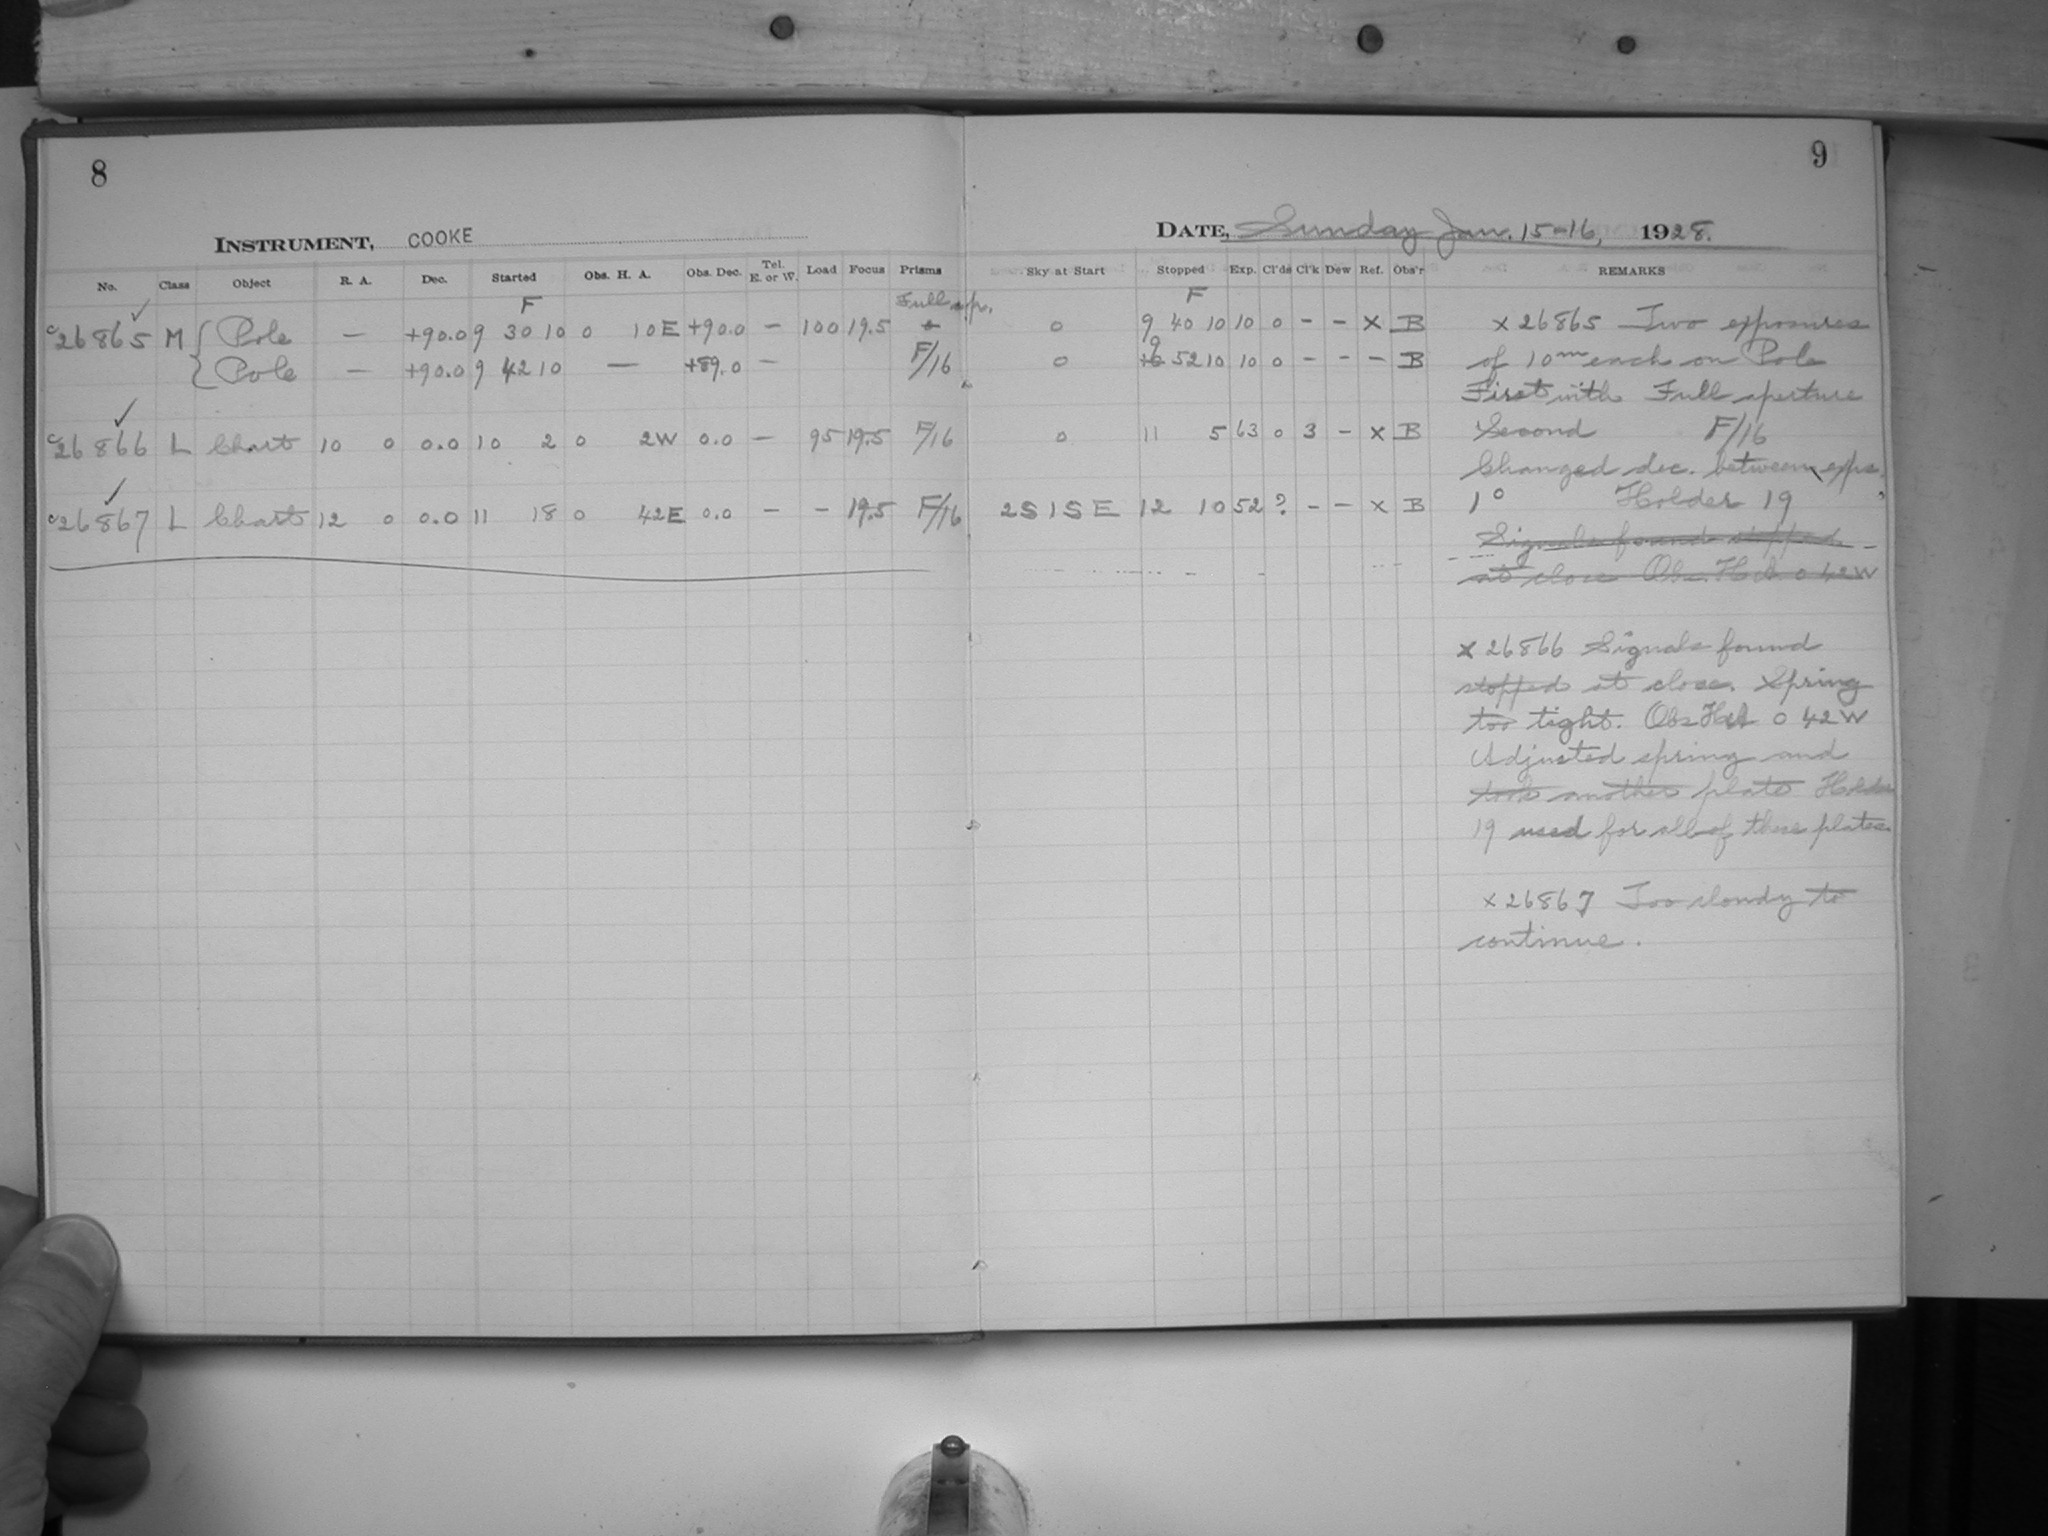 8
INSTRUMENT, COOKE
No. Class Object R. A. Dec. Started Obs. H. A. Obs. Dec. Tel. E. or W. Load Focus Prisms
F Full ap.
c26865 ✓ M { Pole — +90.0 9 30 10 0 10E +90.0 — 100 19.5
Pole — +90.0 9 42 10 — +89.0 — F/16
c26866 ✓ L Chart 10 0 0.0 10 2 0 2W 0.0 — 95 19.5 F/16
c26867 ✓ L Chart 12 0 0.0 11 18 0 42E 0.0 — — 19.5 F/16
9
DATE, Sunday Jan. 15-16, 1928.
Sky at Start Stopped Exp. Cl'ds Cl'k Dew Ref. Obs'r REMARKS
F
0 9 40 10 10 0 — — x B
0 9 52 10 10 0 — — — B
0 11 5 63 0 3 — x B
2S1SE 12 10 52 ? — — x B
x 26865 Two exposures
of 10m each on Pole
First with Full aperture
Second F/16
Changed dec. between exps.
1° Holder 19
Signals found stopped
at close Obs. H A 0 42W
x 26866 Signals found
stopped at close. Spring
too tight. Obs H A 0 42W
Adjusted spring and
took another plate Holder
19 used for all of these plates.
x 26867 Too cloudy to
continue.